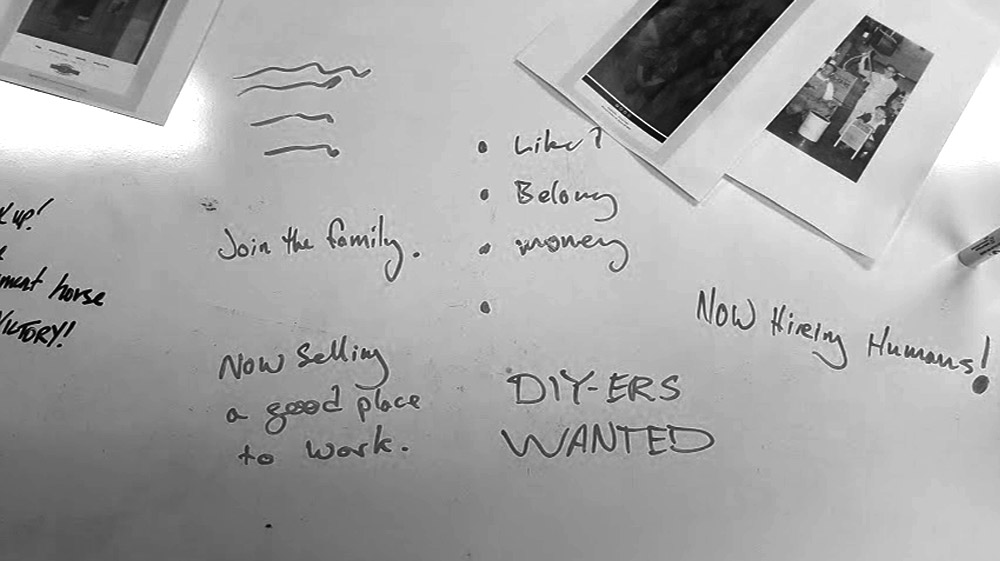 up!
horse
VICTORY!
Join the family.
Now Selling
a good place
to work.
• Like?
• Belong
• money
•
DIY-ERS
WANTED
Now Hiring Humans!